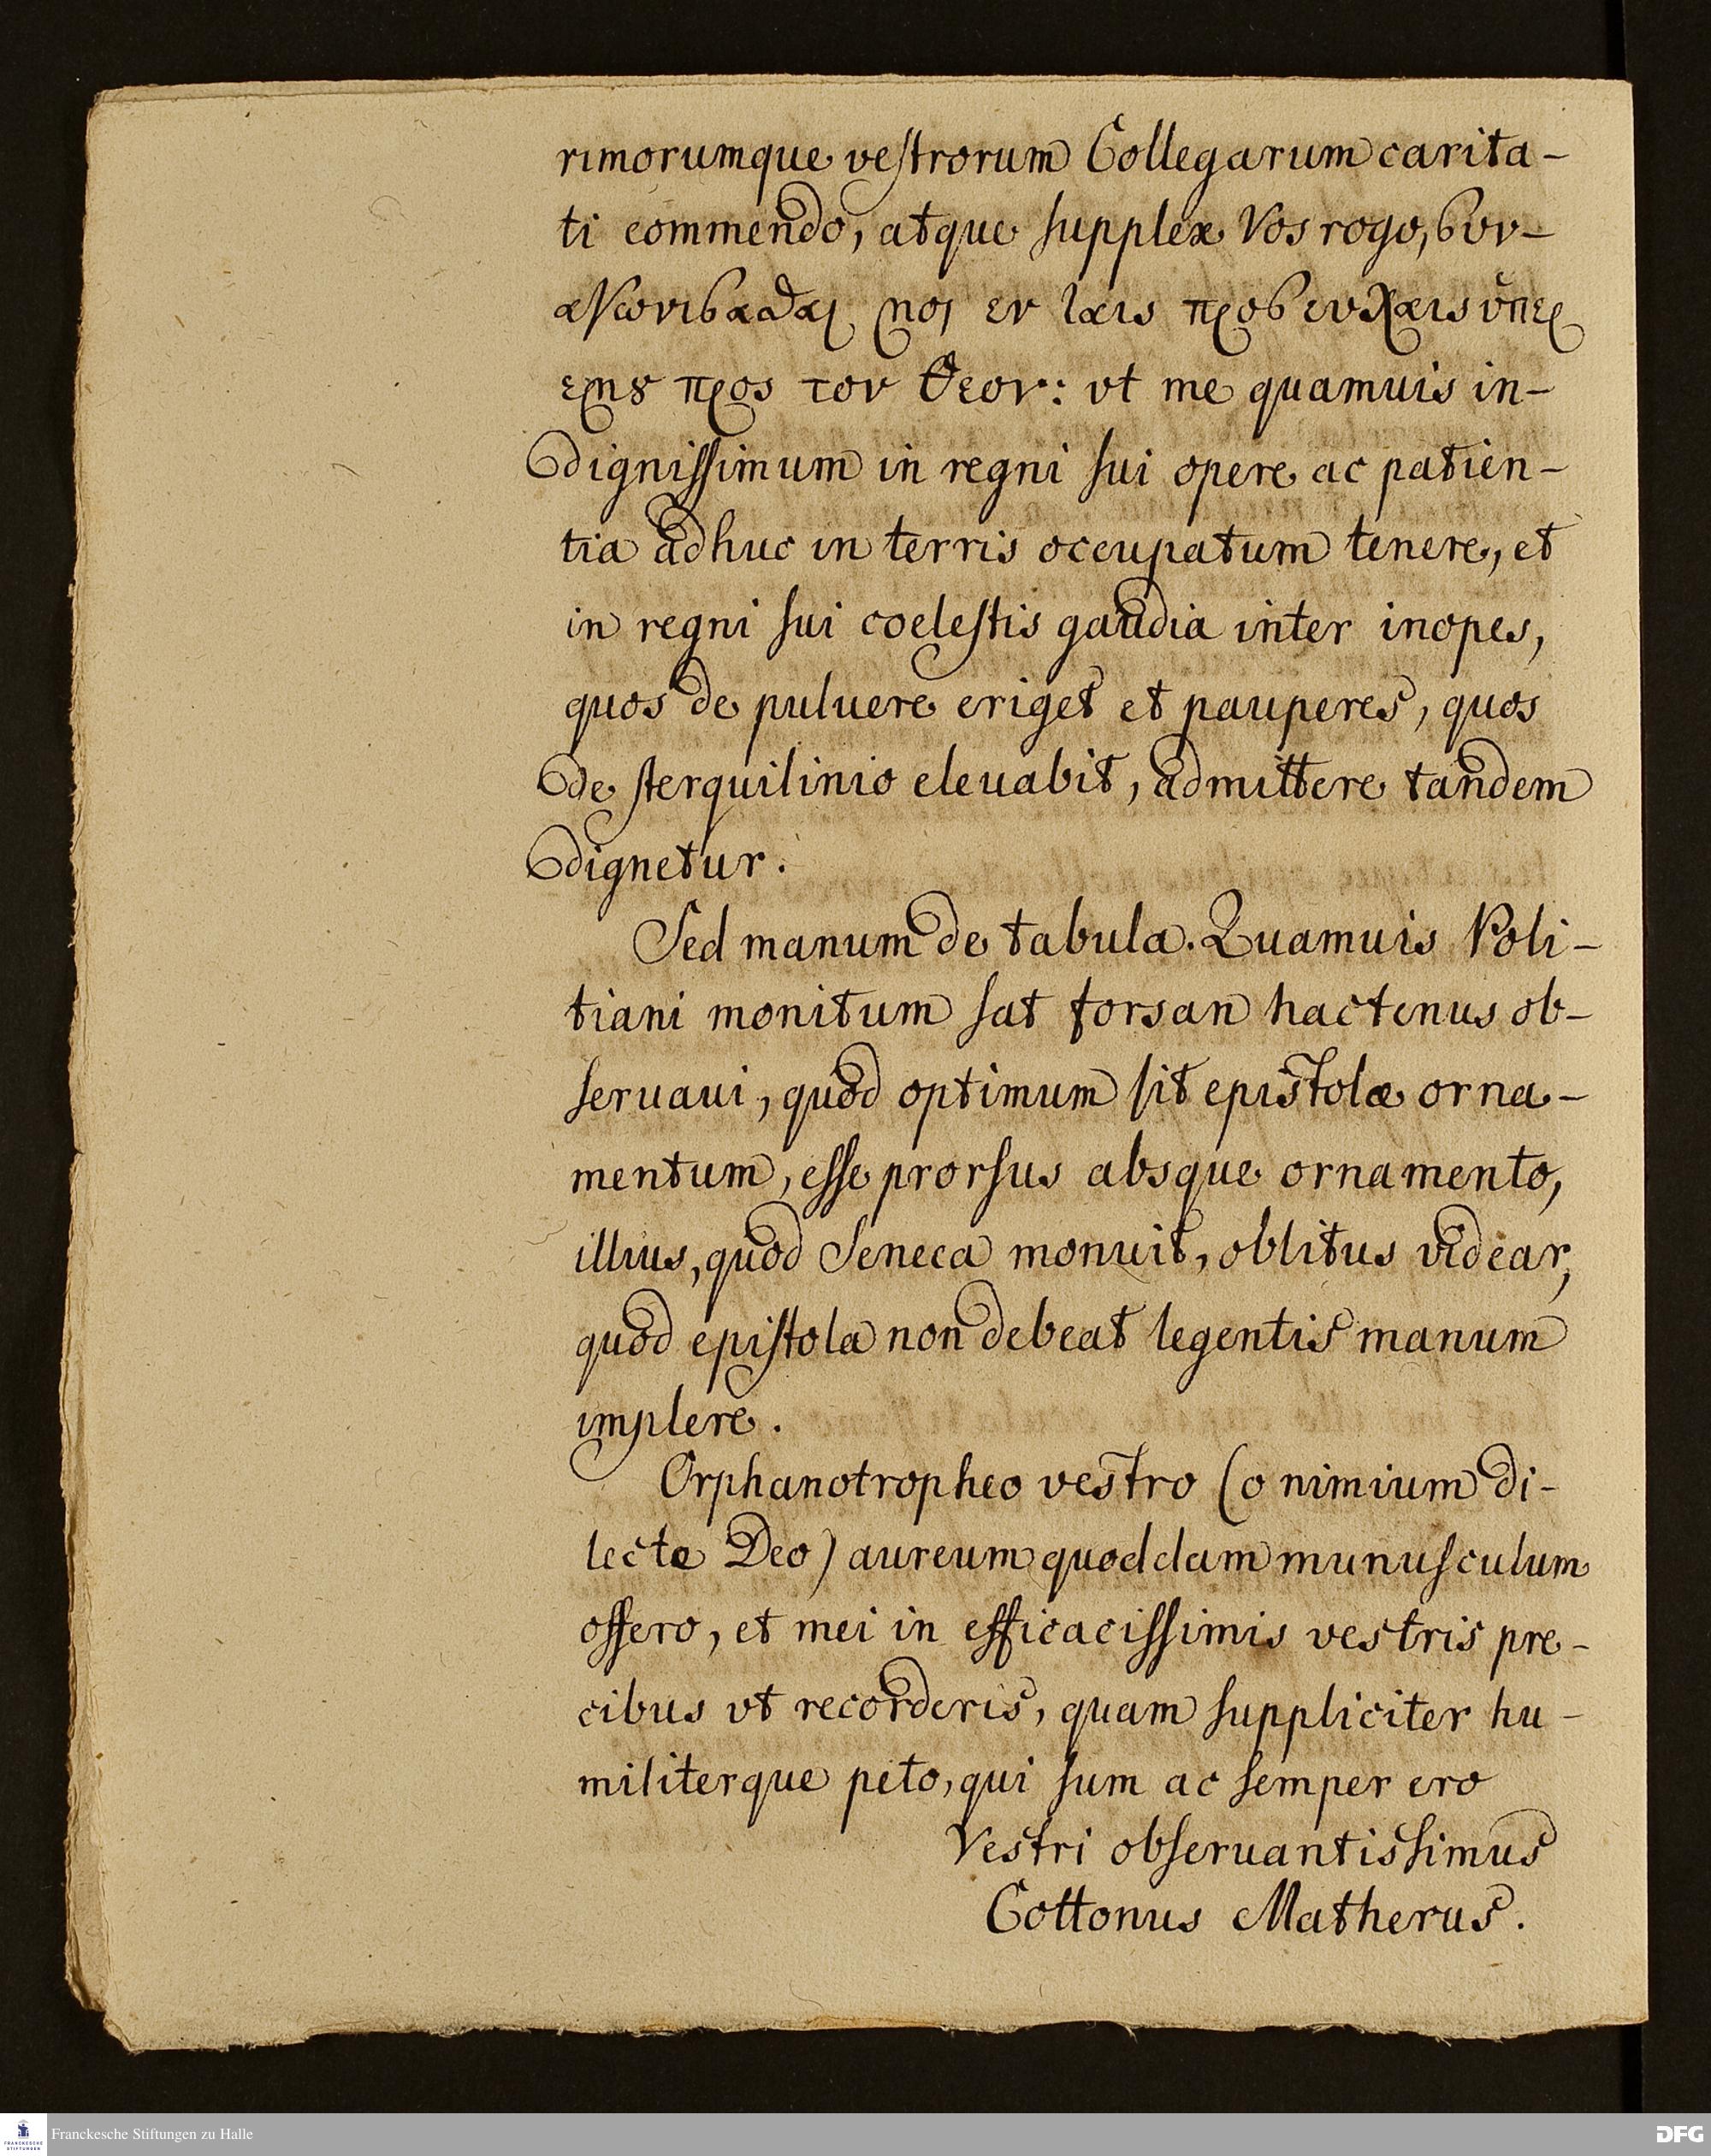 rimorumque vestrorum Collegarum carita-
ti commendo, atque supplex Vos rogo, συν-
αγωνισασθαι μοι εν ταις προσευχαις ὑπερ
εμȣ προς τον Θεον: vt me quamuis in-
dignissimum in regni sui opere ac patien-
tia adhuc in terris occupatum tenere, et
in regni sui coelestis gaudia inter inopes,
quos de puluere eriget et pauperes, quos
de sterquilinio eleuabit, admittere tandem
dignetur.
Sed manum de tabula. Quamuis Poli-
tiani monitum sat forsan hactenus ob-
seruaui, quod optimum sit epistolæ orna-
mentum, esse prorsus absque ornamento,
illius, quod Seneca monuit, oblitus videar,
quod epistola non debeat legentis manum
implere.
Orphanotropheo vestro (o nimium di-
lecte Deo) aureum quoddam munusculum
offero, et mei in efficacissimis vestris pre-
cibus vt recorderis, quam suppliciter hu-
militerque peto, qui sum ac semper ero
Vestri obseruantissimus
Cottonus Matherus.
FRANCKESCHE
STIFTUNGEN
Franckesche Stiftungen zu Halle
DFG